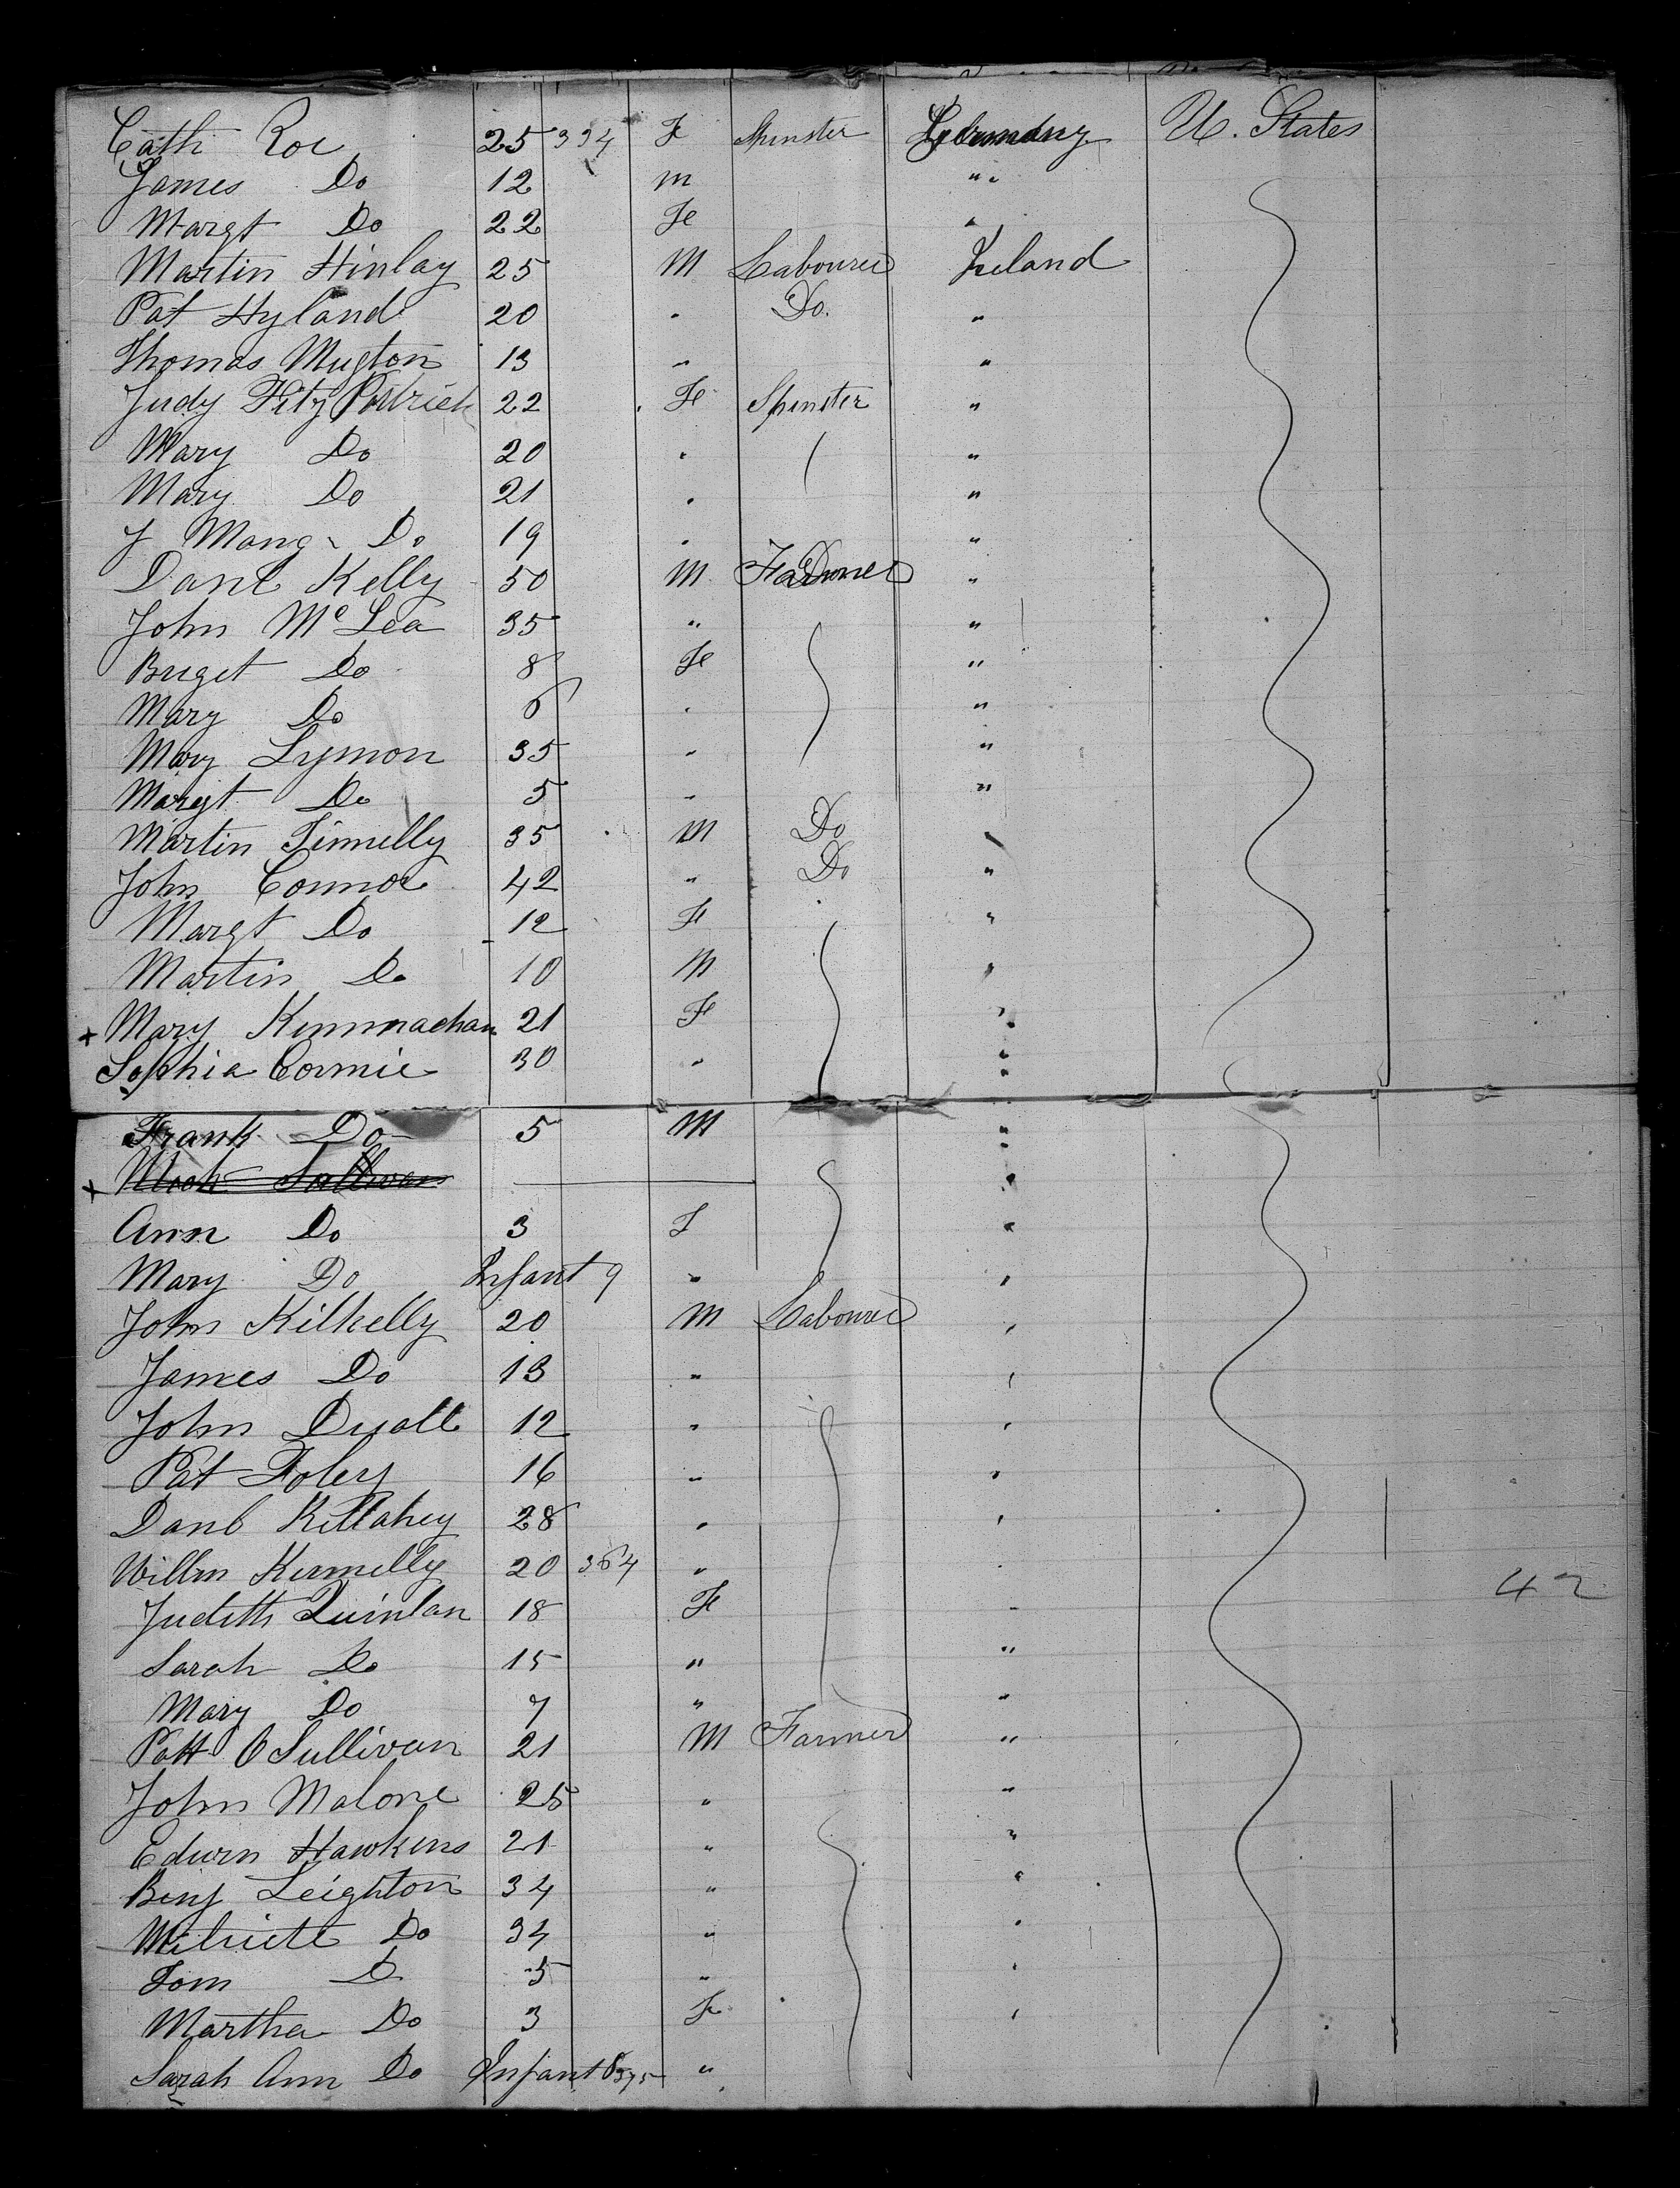 Cath Roe 25 334 Fe Spinster Germany U. States
James Do 12 m " "
Margt Do 22 Fe "
Martin Hinlay 25 M Labourer Ireland
Pat Hyland 20 " Do. "
Thomas Mugton 13 " "
Judy Fitz Patrick 22 Fe Spinster "
Mary Do 20 " "
Mary Do 21 " "
J Do 19 " "
Danl Kelly 50 M Farmer "
John Mc Lea 35 " "
Briget Do 8 Fe "
Mary Do 6 " "
Mary Lymon 35 " "
Margt Do 5 " "
Martin Finnelly 35 M Do "
John Connor 42 " Do "
Margt Do 12 Fe "
Martin Do 10 M "
+ Mary Kimmachan 21 Fe "
Sophia Cormie 30 " "
Frank Do 5 M "
+ Mich Sullivan "
Ann Do 3 F "
Mary Do Infant 9 " "
John Kilkelly 20 M Labourer "
James Do 13 " "
John Dyall 12 " "
Pat Foley 16 " "
Danl Killahey 28 " "
Willm Kennelly 20 364 "
42
Judith Quinlan 18 Fe "
Sarah Do 15 " "
Mary Do 7 " "
Patt O Sullivan 21 M Farmer "
John Malone 25 " "
Edwin Hawkins 21 " "
Benj Leighton 34 " "
Do 34 " "
Tom Do 5 " "
Martha Do 3 Fe "
Sarah Ann Do Infant "